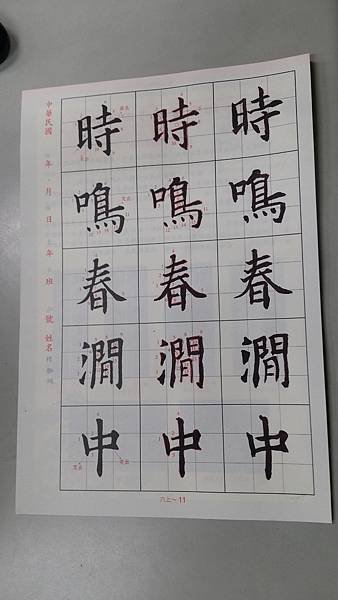 時鳴春澗中
時鳴春澗中
時鳴春澗中
中華民國 年 月 日 年 班 號 姓名
六上~11